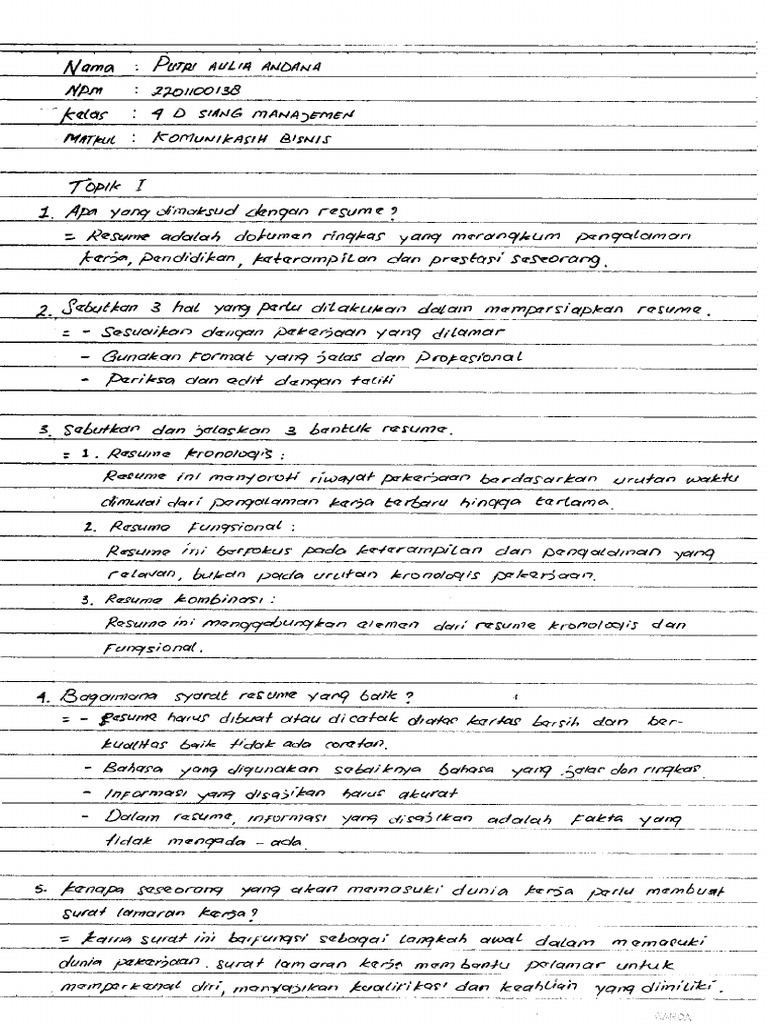 Nama : PUTRI AULIA ANDANA
NPM : 2201100138
Kelas : 4 D SIANG MANAJEMEN
MATKUL : KOMUNIKASIH BISNIS
TOPIK I
1. Apa yang dimaksud dengan resume?
= Resume adalah dokumen ringkas yang merangkum pengalaman
kerja, pendidikan, keterampilan dan prestasi seseorang.
2. Sebutkan 3 hal yang perlu dilakukan dalam mempersiapkan resume.
= - Sesuaikan dengan pekerjaan yang dilamar
- Gunakan Format yang jelas dan Profesional
- Periksa dan edit dengan teliti
3. Sebutkan dan jelaskan 3 bentuk resume.
= 1. Resume kronologis :
Resume ini menyoroti riwayat pekerjaan berdasarkan urutan waktu
dimulai dari pengalaman kerja terbaru hingga terlama.
2. Resume Fungsional :
Resume ini berfokus pada keterampilan dan pengalaman yang
relevan, bukan pada urutan kronologis pekerjaan.
3. Resume kombinasi :
Resume ini menggabungkan elemen dari resume kronologis dan
Fungsional.
4. Bagaimana syarat resume yang baik ?
= - Resume harus dibuat atau dicetak diatas kertas bersih dan ber-
kualitas baik tidak ada coretan.
- Bahasa yang digunakan sebaiknya bahasa yang jelas dan ringkas.
- Informasi yang disajikan harus akurat
- Dalam resume, informasi yang disajikan adalah Fakta yang
tidak mengada - ada.
5. Kenapa seseorang yang akan memasuki dunia kerja perlu membuat
surat lamaran kerja?
= Karna surat ini berfungsi sebagai langkah awal dalam memasuki
dunia pekerjaan. surat lamaran kerja membantu pelamar untuk
memperkenal diri, menyajikan kualifikasi dan keahlian yang dimiliki.